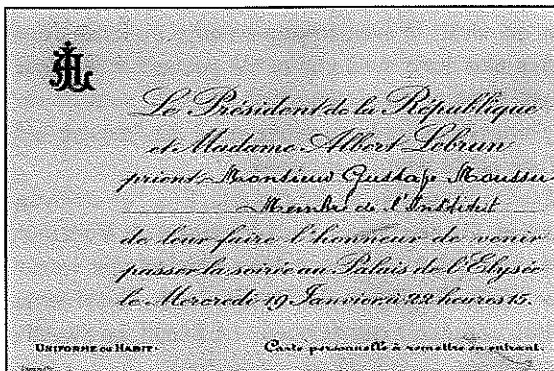 Le Président de la République
et Madame Albert Lebrun
prient Monsieur Gustave Moussu
Membre de l'Institut
de leur faire l'honneur de venir
passer la soirée au Palais de l'Elysée
le Mercredi 19 Janvier à 22 heures 15.
UNIFORME OU HABIT. Carte personnelle à remettre en entrant.